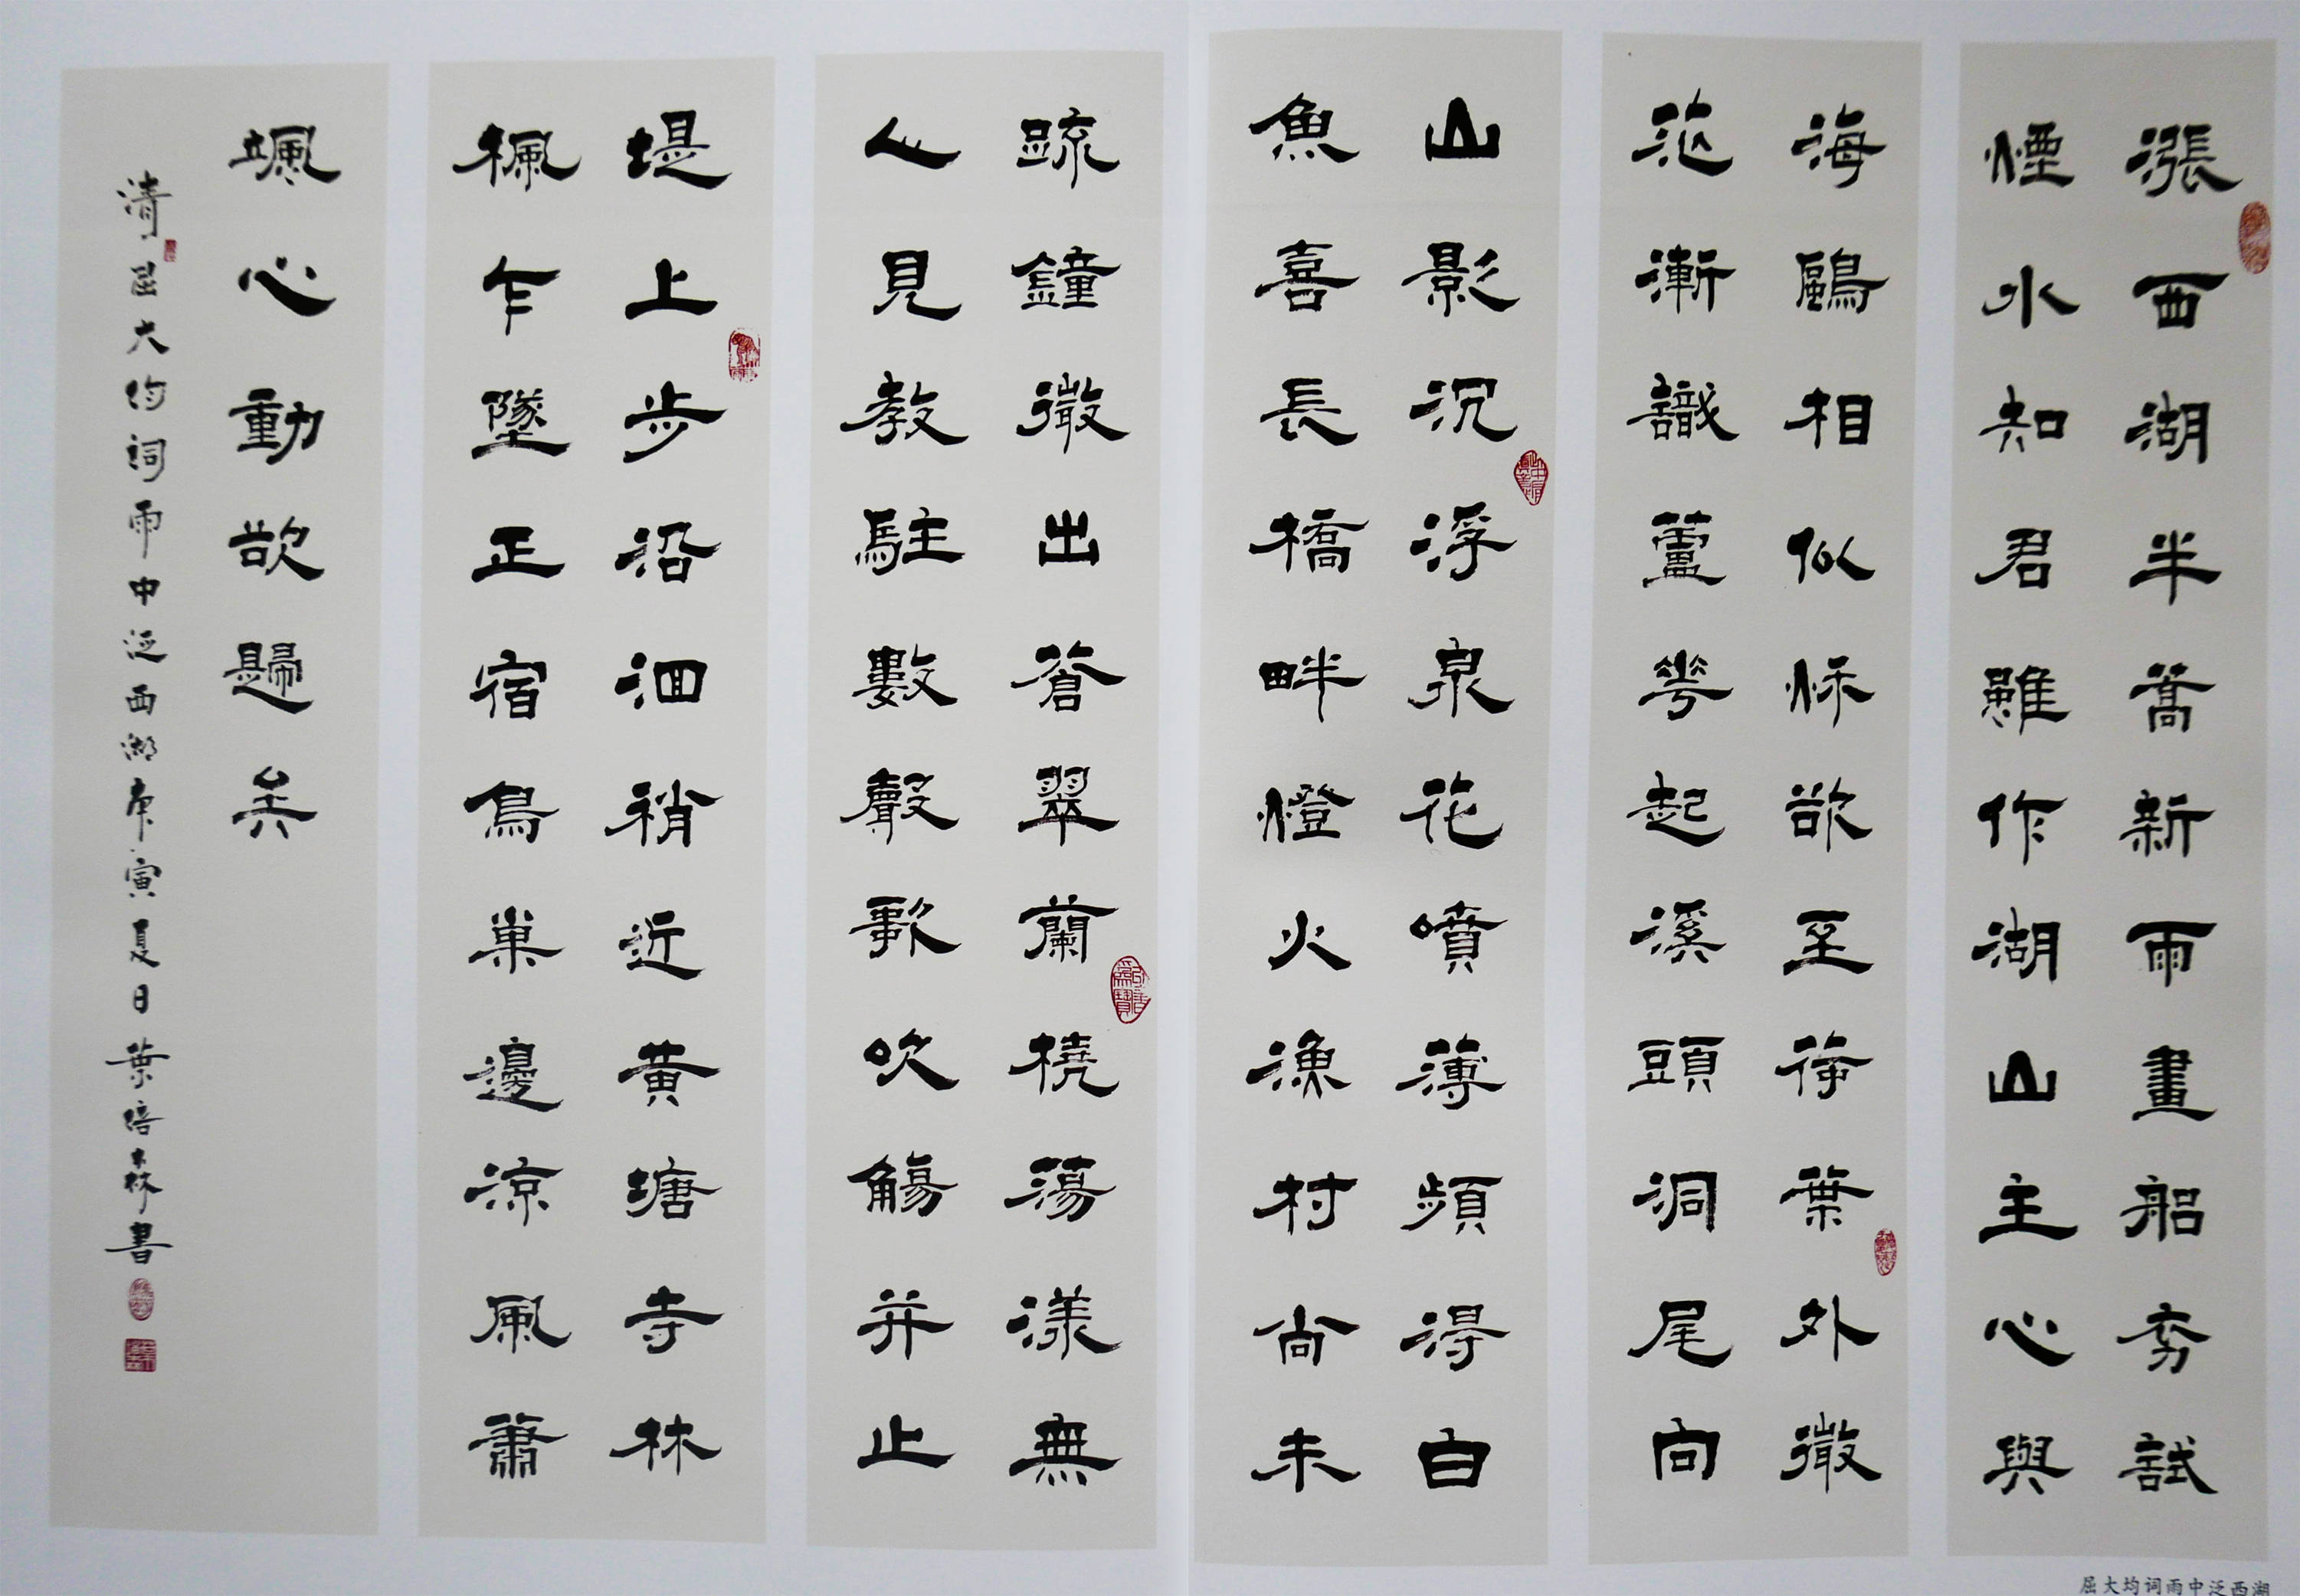 漲西湖半蒿新雨畫船試
煙水知君雖作湖山主心與
海鷗相似欲至葉外微
茫漸識蘆華起溪頭洞尾向
山影沉浮泉花噴薄頻得白
魚喜長橋畔燈火漁村尚未
疏鐘微出蒼翠蘭橈蕩漾無
人見教駐數聲歌吹觴并止
堤上步沿洄稍近黃塘寺林
楓乍墜正宿鳥巢邊涼風蕭
颯心動欲歸矣
清屈大均詞雨中泛西湖庚寅夏日葉培森書
屈大均词雨中泛西湖